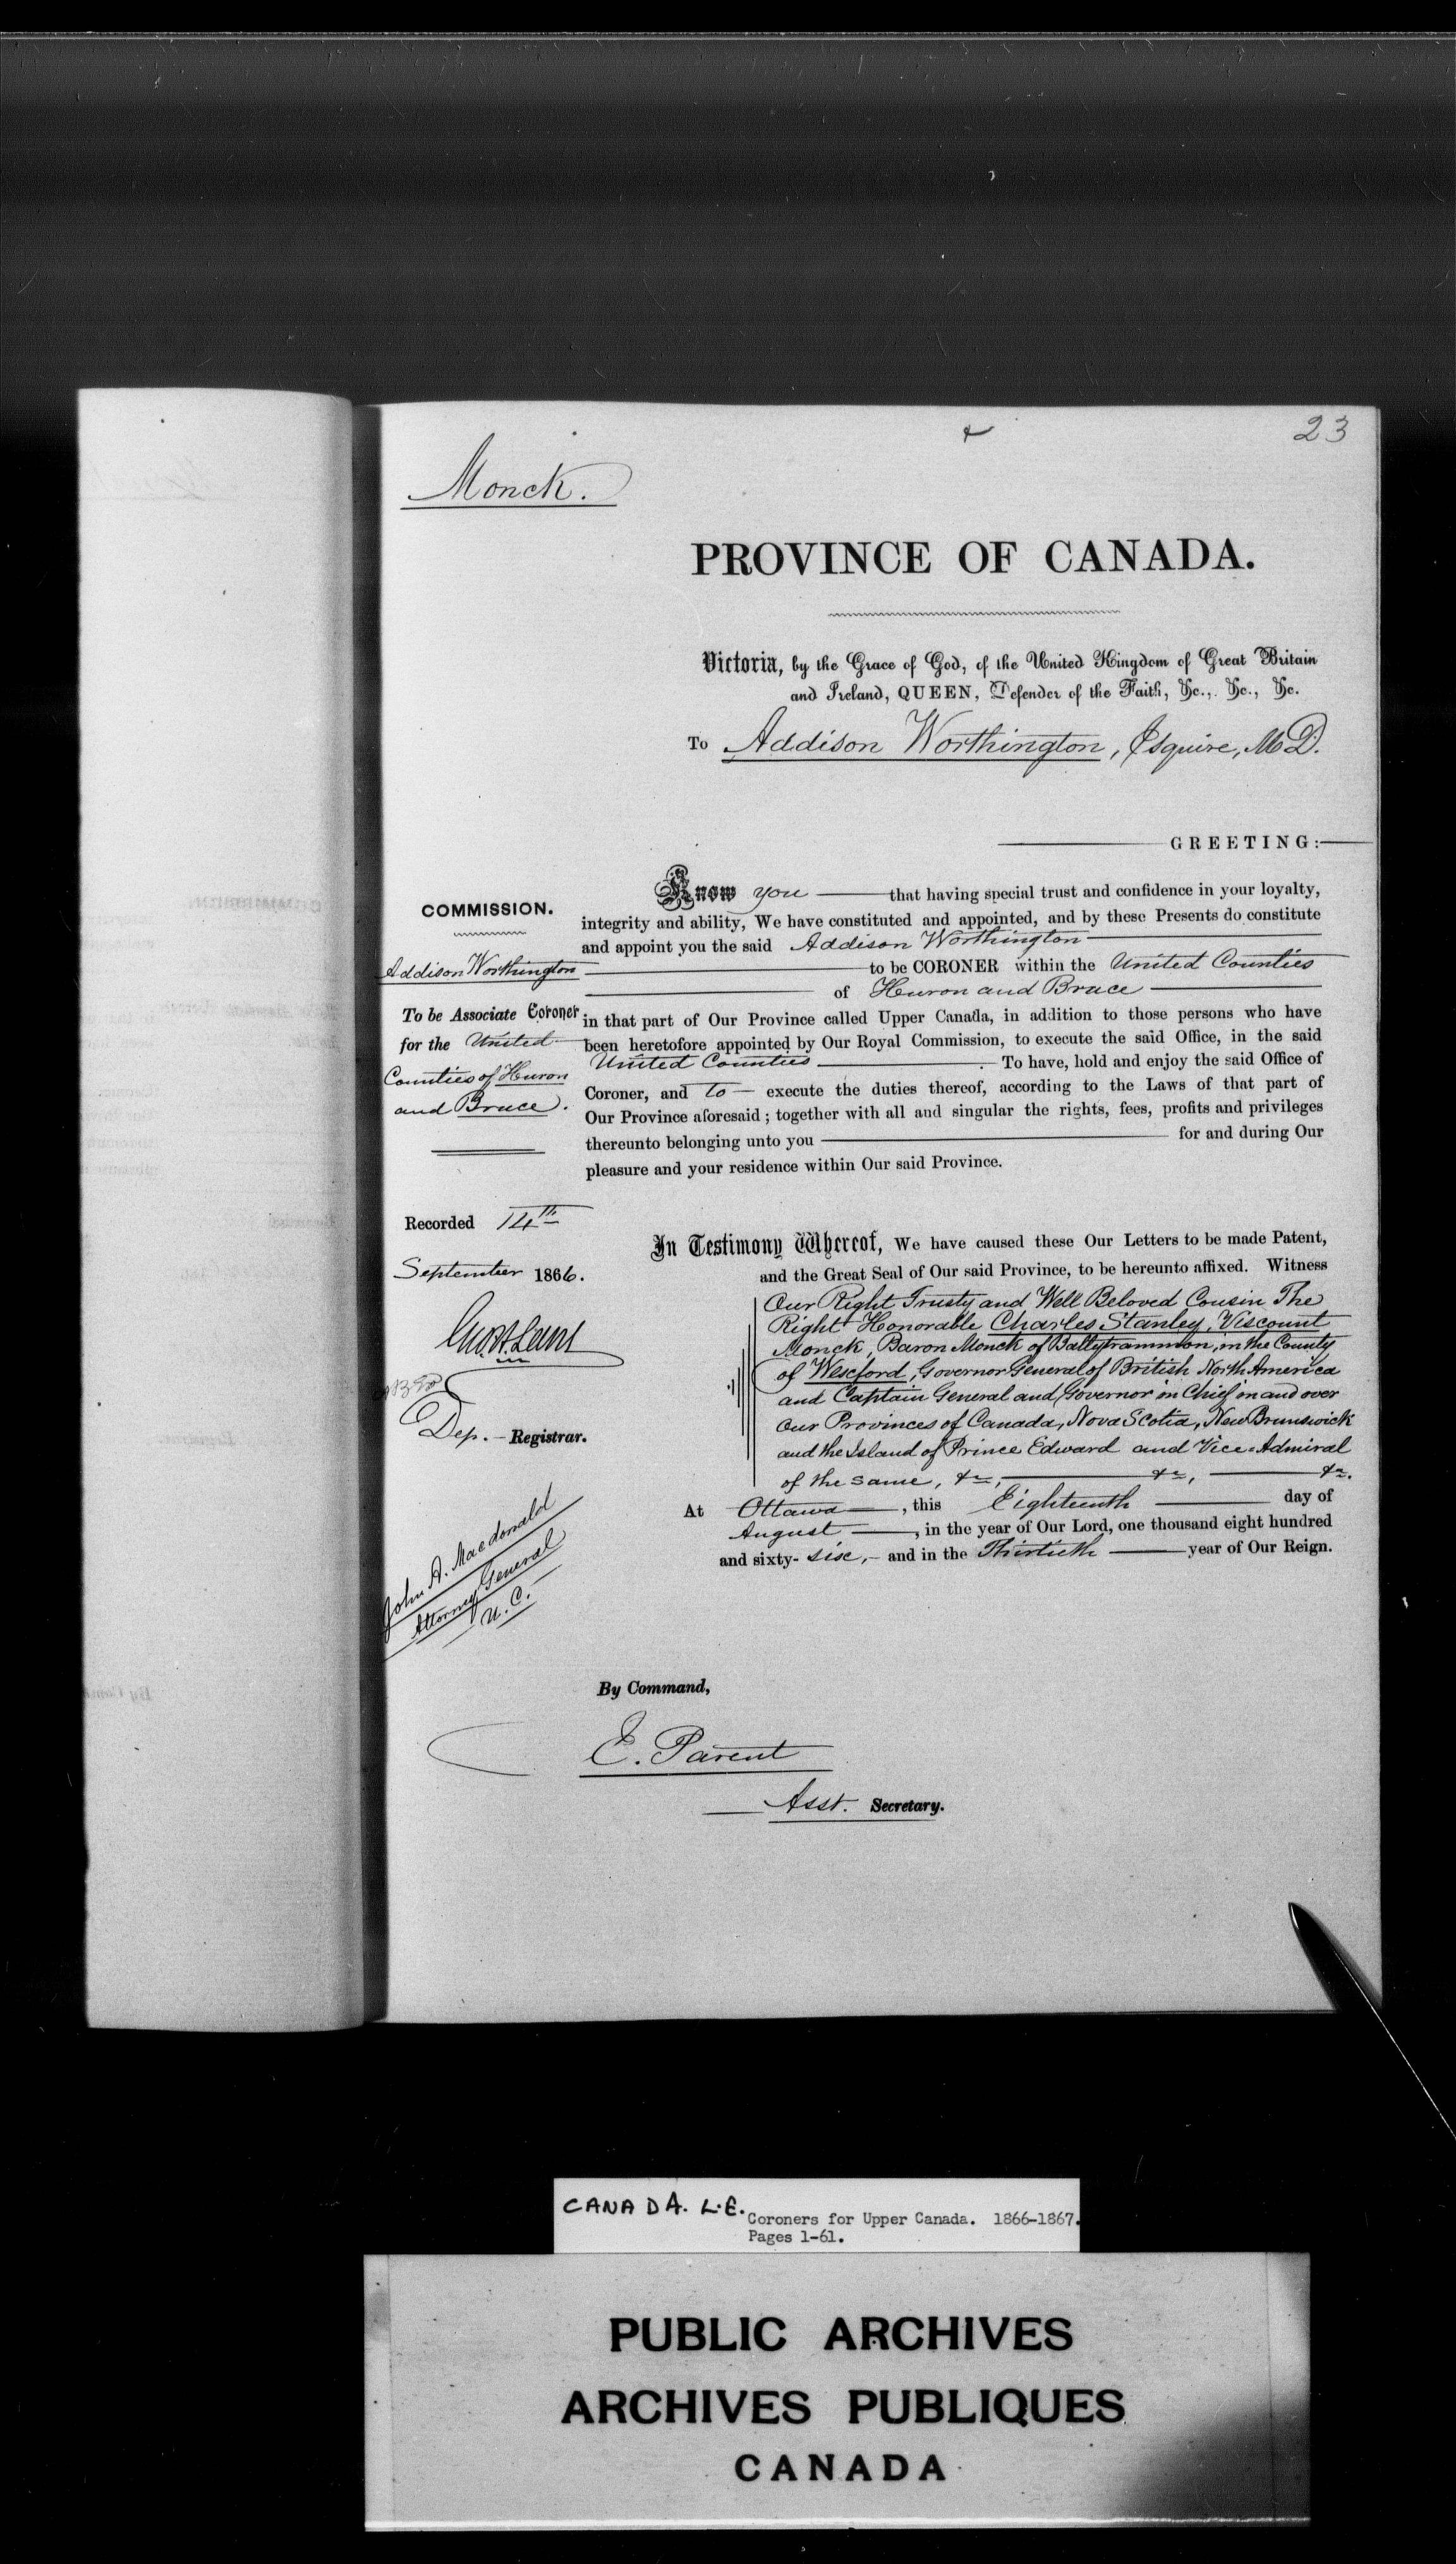 23
Monck.
PROVINCE OF CANADA.
Victoria, by the Grace of God, of the United Kingdom of Great Britain
and Ireland, QUEEN, Defender of the Faith, &c., &c., &c.
To Addison Worthington, Esquire, M.D.
GREETING:
COMMISSION.
Addison Worthington
To be Associate Coroner
for the United
Counties of Huron
and Bruce.
Know you that having special trust and confidence in your loyalty,
integrity and ability, We have constituted and appointed, and by these Presents do constitute
and appoint you the said Addison Worthington
to be CORONER within the United Counties
of Huron and Bruce
in that part of Our Province called Upper Canada, in addition to those persons who have
been heretofore appointed by Our Royal Commission, to execute the said Office, in the said
United Counties. To have, hold and enjoy the said Office of
Coroner, and to execute the duties thereof, according to the Laws of that part of
Our Province aforesaid; together with all and singular the rights, fees, profits and privileges
thereunto belonging unto you for and during Our
pleasure and your residence within Our said Province.
Recorded 14th
September 1866.
Dep. - Registrar.
In Testimony Whereof, We have caused these Our Letters to be made Patent,
and the Great Seal of Our said Province, to be hereunto affixed. Witness
Our Right Trusty and Well Beloved Cousin The
Right Honorable Charles Stanley, Viscount
Monck, Baron Monck of Ballytrammon, in the County
of Wexford, Governor General of British North America
and Captain General and Governor in Chief in and over
Our Provinces of Canada, Nova Scotia, New Brunswick
and the Island of Prince Edward and Vice=Admiral
of the same, &c, &c, &c.
At Ottawa, this Eighteenth day of
August, in the year of Our Lord, one thousand eight hundred
and sixty-six, - and in the Thirtieth year of Our Reign.
John A. Macdonald
Attorney General
U. C.
By Command,
E. Parent
Asst. Secretary.
CANADA. L.E. Coroners for Upper Canada. 1866-1867.
Pages 1-61.
PUBLIC ARCHIVES
ARCHIVES PUBLIQUES
CANADA